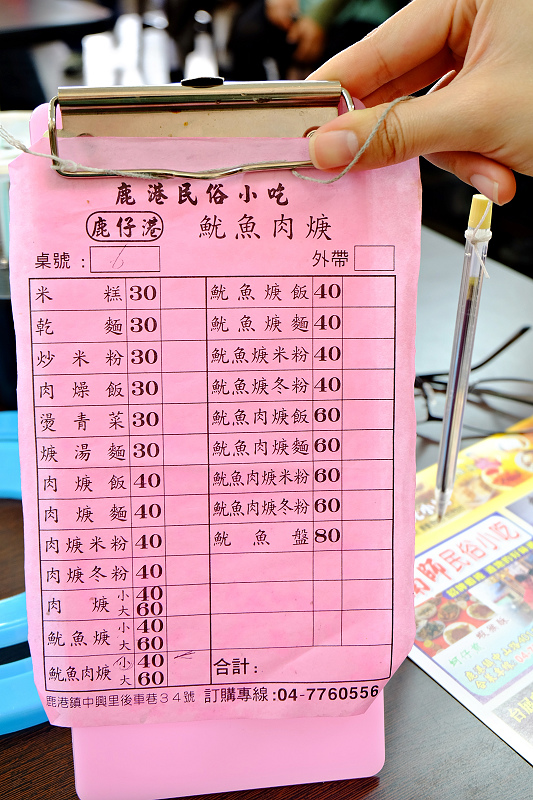 鹿港民俗小吃
鹿仔港 魷魚肉焿
桌號： 6 外帶
米糕 30 魷魚焿飯 40
乾麵 30 魷魚焿麵 40
炒米粉 30 魷魚焿米粉 40
肉燥飯 30 魷魚焿冬粉 40
燙青菜 30 魷魚肉焿飯 60
焿湯麵 30 魷魚肉焿麵 60
肉焿飯 40 魷魚肉焿米粉 60
肉焿麵 40 魷魚肉焿冬粉 60
肉焿米粉 40 魷魚盤 80
肉焿冬粉 40
肉焿 小 40 大 60
魷魚焿 小 40 大 60
魷魚肉焿 小 40 大 60 合計：
鹿港鎮中興里後車巷34號 訂購專線:04-7760556
師民俗小吃